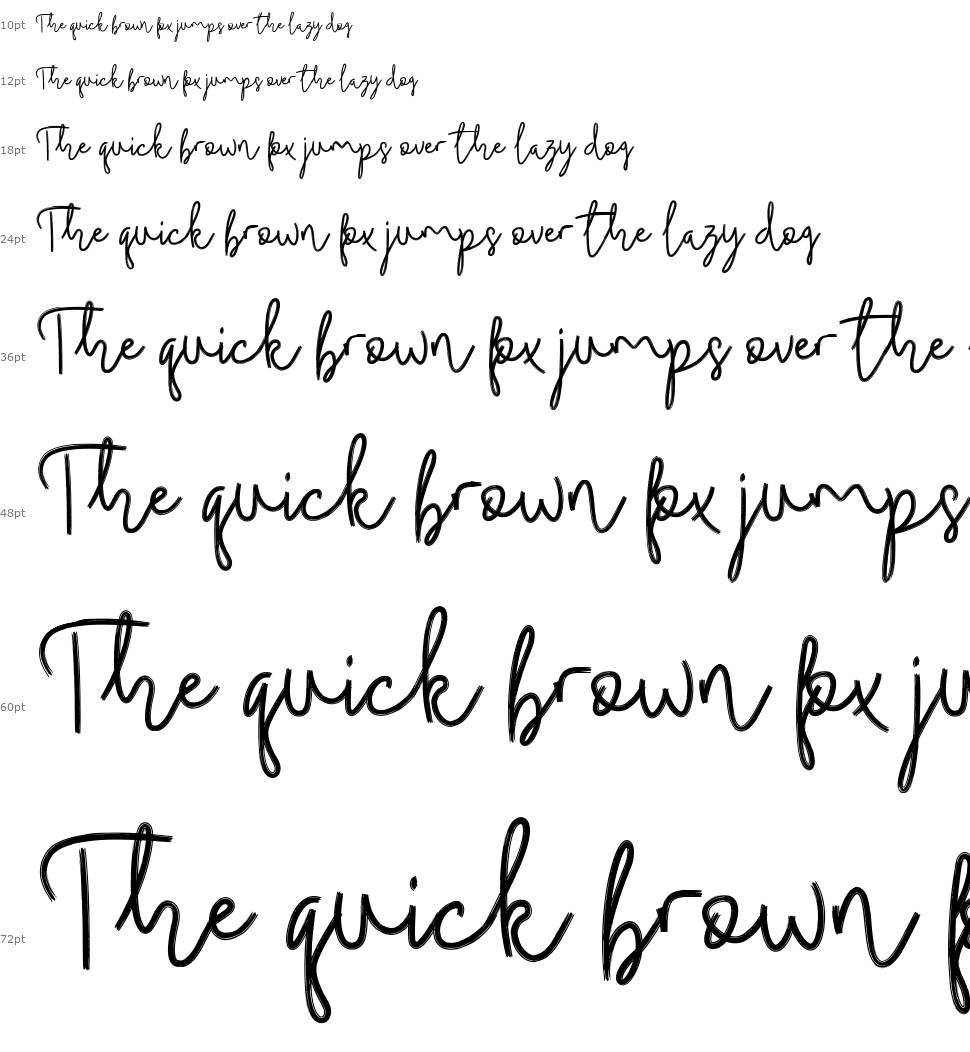 10pt The quick brown fox jumps over the lazy dog
12pt The quick brown fox jumps over the lazy dog
18pt The quick brown fox jumps over the lazy dog
24pt The quick brown fox jumps over the lazy dog
36pt The quick brown fox jumps over the
48pt The quick brown fox jumps
60pt The quick brown fox ju
72pt The quick brown f